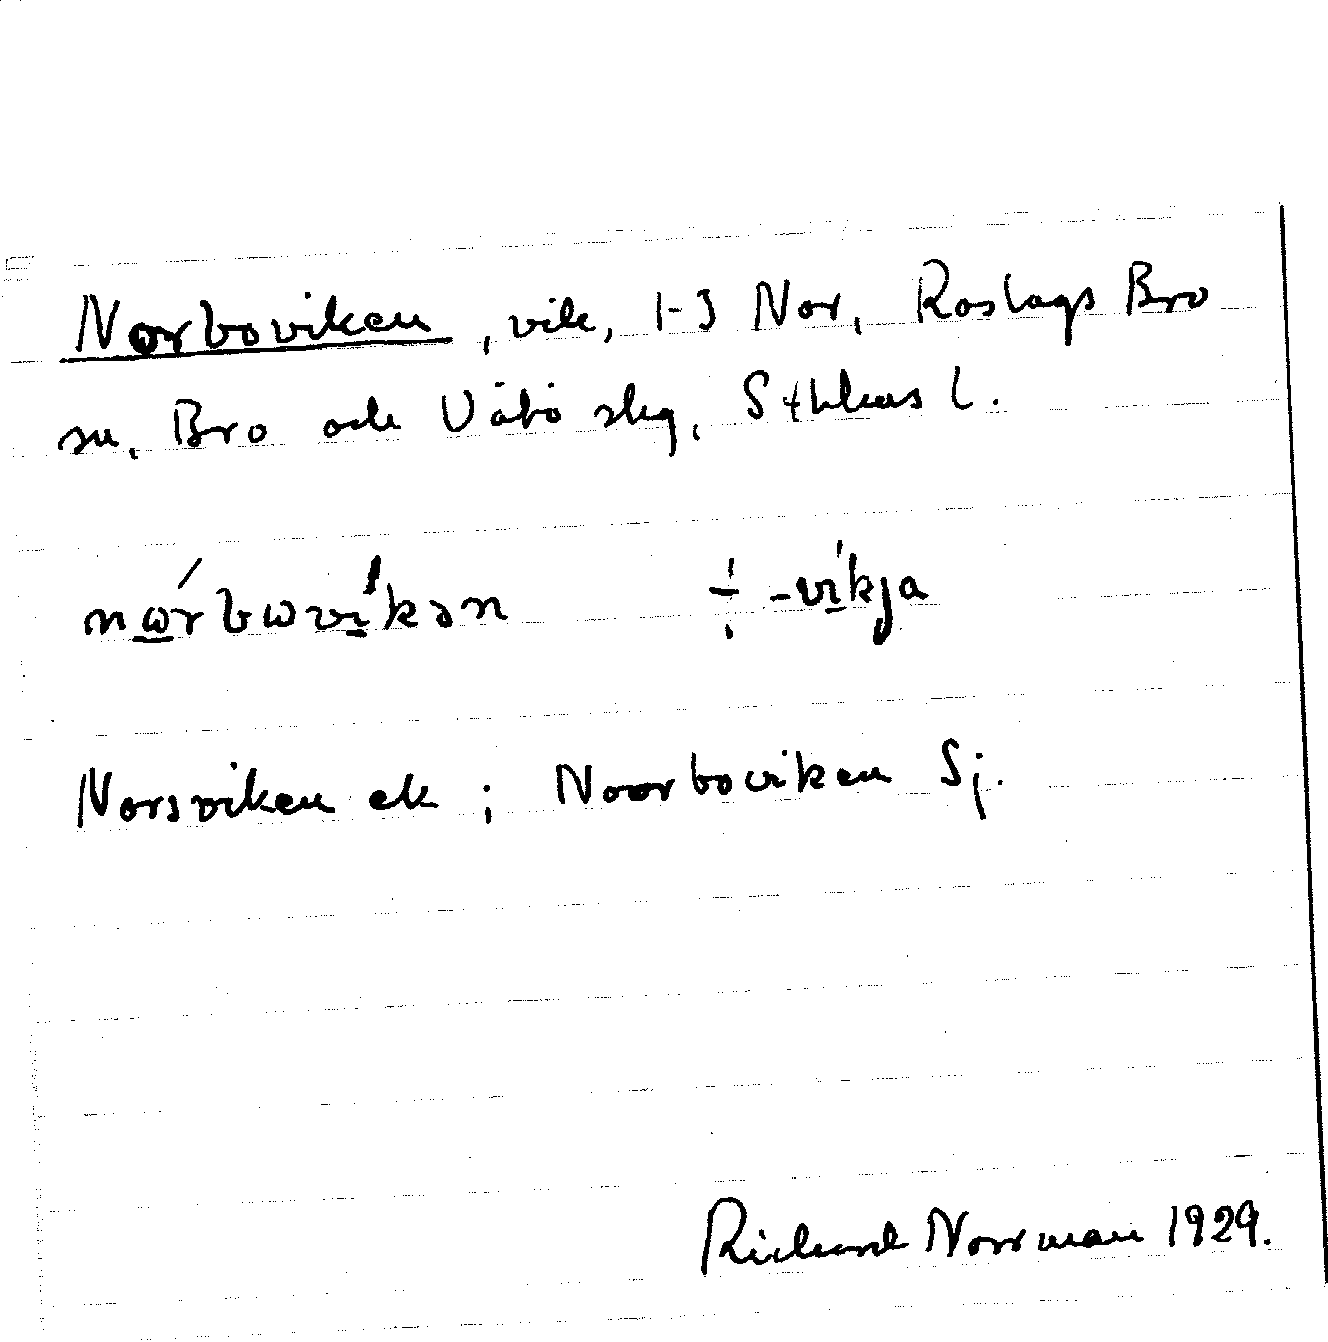 Norboviken, vik, 1-3 Nor, Roslags Bro
sn, Bro och Vätö skg, Sthlms l.
nώ̲rbωvi̲̍kən ÷ -vi̲̍kja
Norsviken ek; Noorboviken Sj.
Richard Norrman 1929.